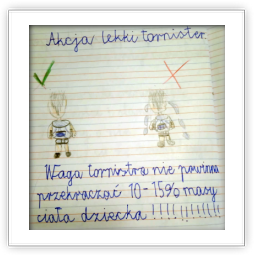 Akcja lekki tornister.
Waga tornistra nie powinna
przekraczać 10-15% masy
ciała dziecka !!!!!!!!!!